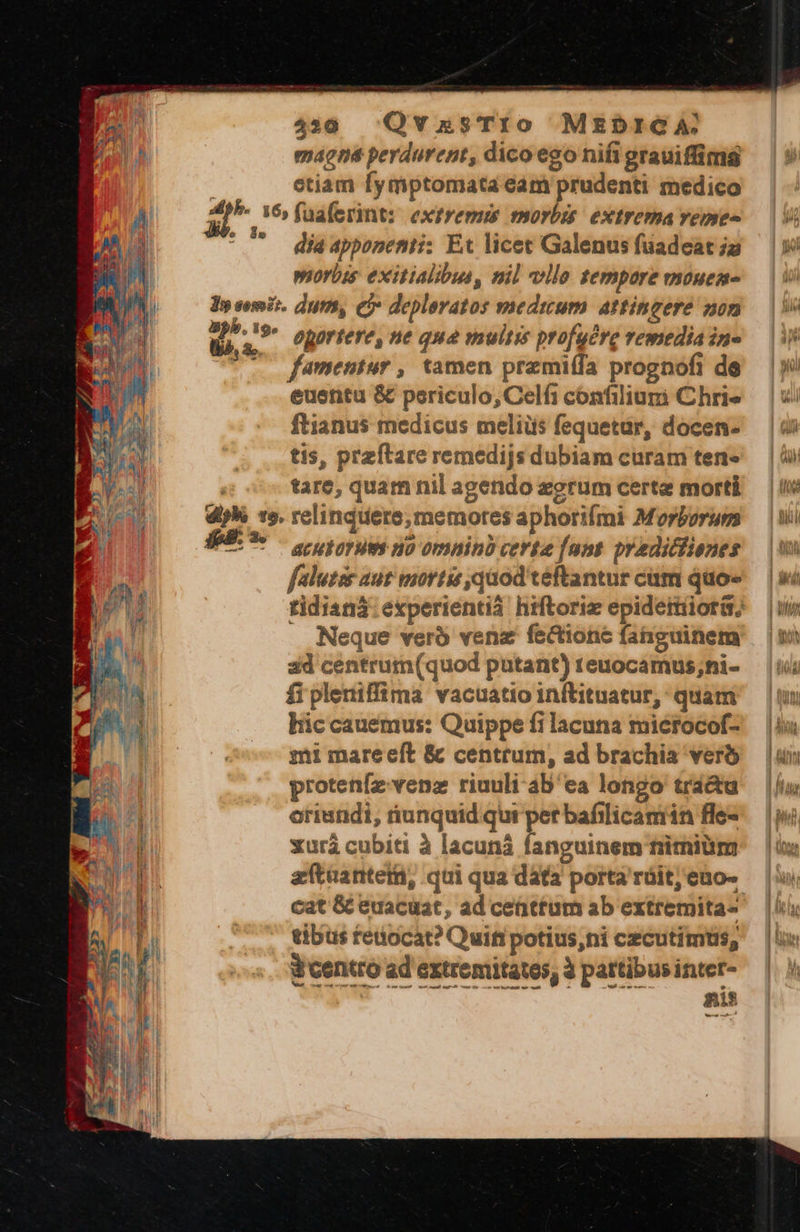 430 QVÆSTIO MEDICA.
magna perdurent, dico ego nisi grauissima
etiam symptomata eam prudenti medico
Aph. 16, suaserint: extremis morbis extrema reme-
lib. 1.
dia apponenti: Et licet Galenus suadeat in
morbis exitialibus, nil vllo tempore mouen-
In comēt. dum, & deploratos medicum attingere non
aph. 19. oportere, ne quæ multis profuêre remedia in-
lib, 2.
famentur, tamen præmissa prognosi de
euentu & periculo, Celsi consilium Chri-
stianus medicus meliùs sequetur, docen-
tis, præstare remedijs dubiam curam ten-
tare, quam nil agendo ægrum certæ morti
Aph. 19. relinquere, memores aphorismi Morborum
acutorum nō omninò certæ sunt prædictiones
salutis aut mortis, quod testantur cum quo-
tidianâ experientiâ historiæ epidemiorū.
Neque verò venæ sectione sanguinem
ad centrum (quod putant) reuocamus, ni-
si plenissima vacuatio instituatur, quam
hic cauemus: Quippe si lacuna microcos-
mi mare est & centrum, ad brachia verò
protensæ venæ riuuli ab ea longo tractu
oriundi, nunquid qui per basilicam in fle-
xurâ cubiti à lacunâ sanguinem nimiùm
æstuantem, qui qua data porta ruit, euo-
cat & euacuat, ad centrum ab extremita-
tibus reuocat? Quin potius, ni cæcutimus,
à centro ad extremitates, à partibus inter-
nis